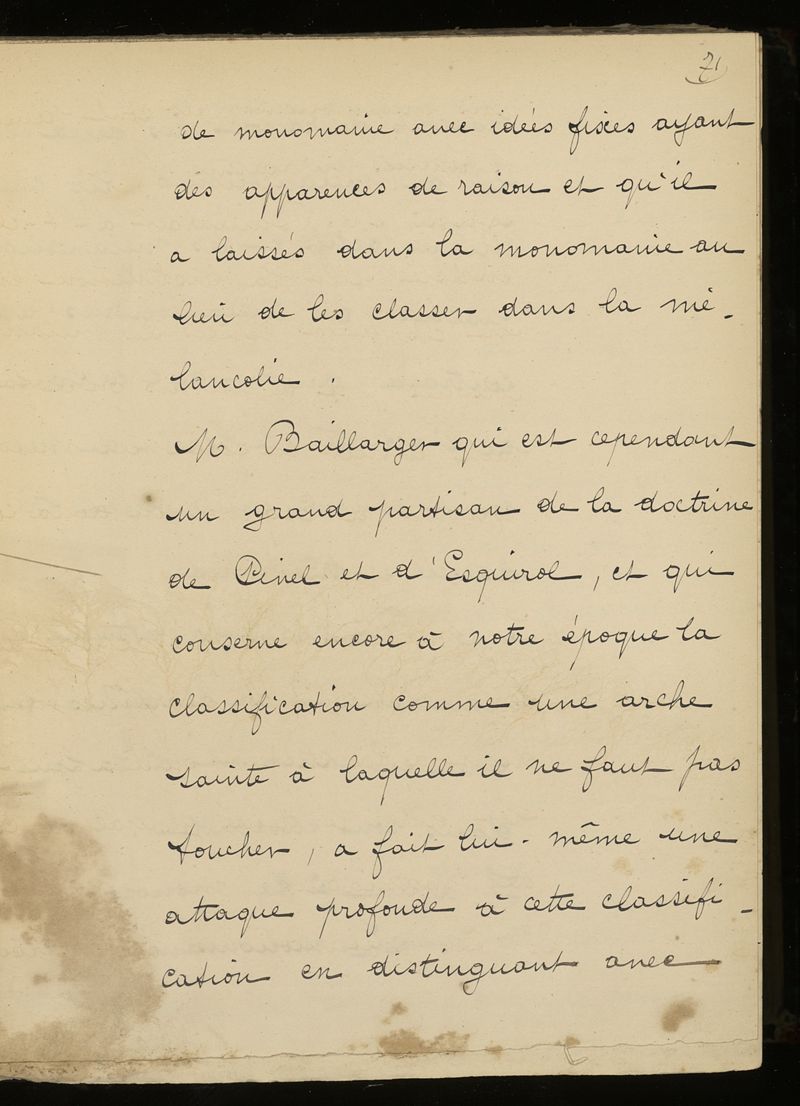 71
de monomanie avec idées fixes ayant
des apparences de raison et qu'il
a laissés dans la monomanie au
lieu de les classer dans la mé-
lancolie.
M. Baillarger qui est cependant
un grand partisan de la doctrine
de Pinel et d'Esquirol, et qui
conserve encore à notre époque la
classification comme une arche
sainte à laquelle il ne faut pas
toucher, a fait lui-même une
attaque profonde à cette classifi-
cation en distinguant avec